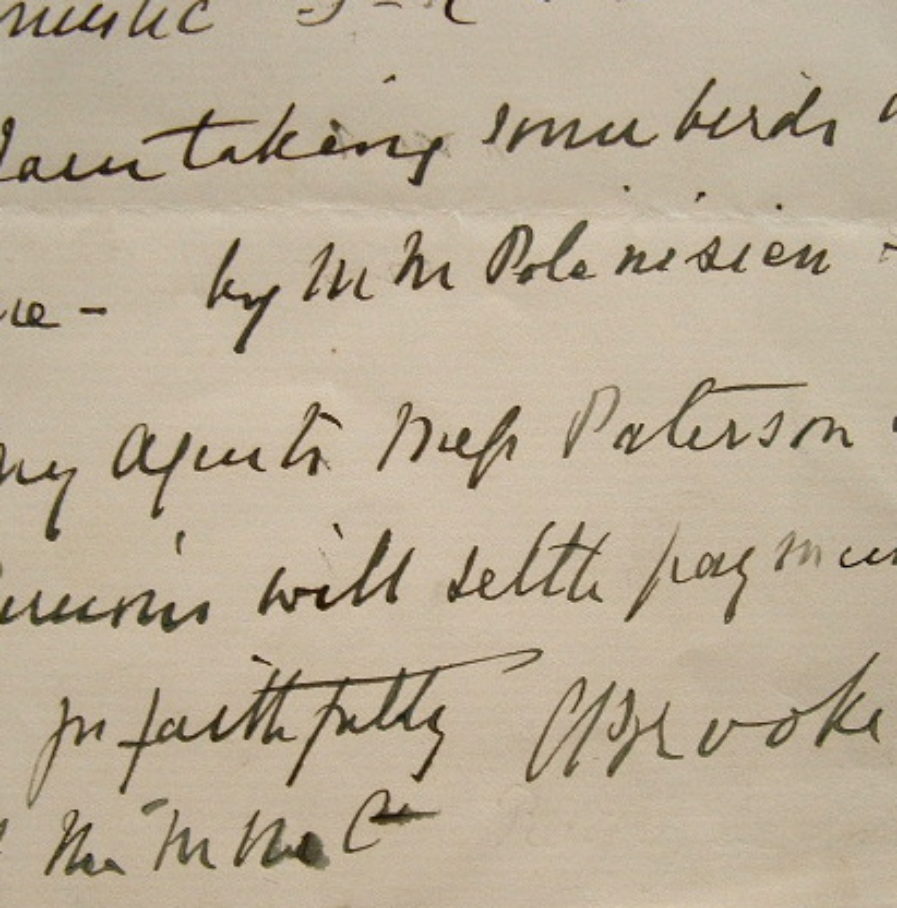 taking some birds
by M M Polinisien
my Agents Mess Paterson
will settle paymen
yrs faithfully CBrooke
The M M Co